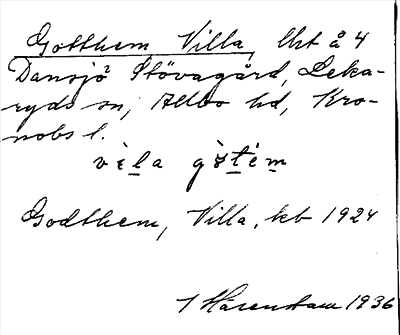 Gotthem Villa, lht å 4
Dansjö Stövagård, Leka-
ryds sn, Allbo hd, Kro-
nobs l.
vèla
Godthem, Villa, kb 1924
1936